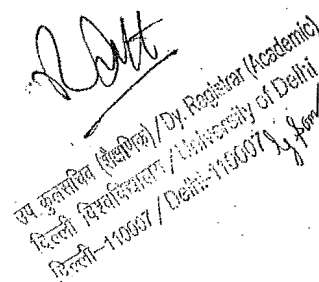 उप कुलसचिव (शैक्षणिक) / Dy. Registrar (Academic)
दिल्ली विश्वविद्यालय / University of Delhi
दिल्ली-110007 / Delhi-110007